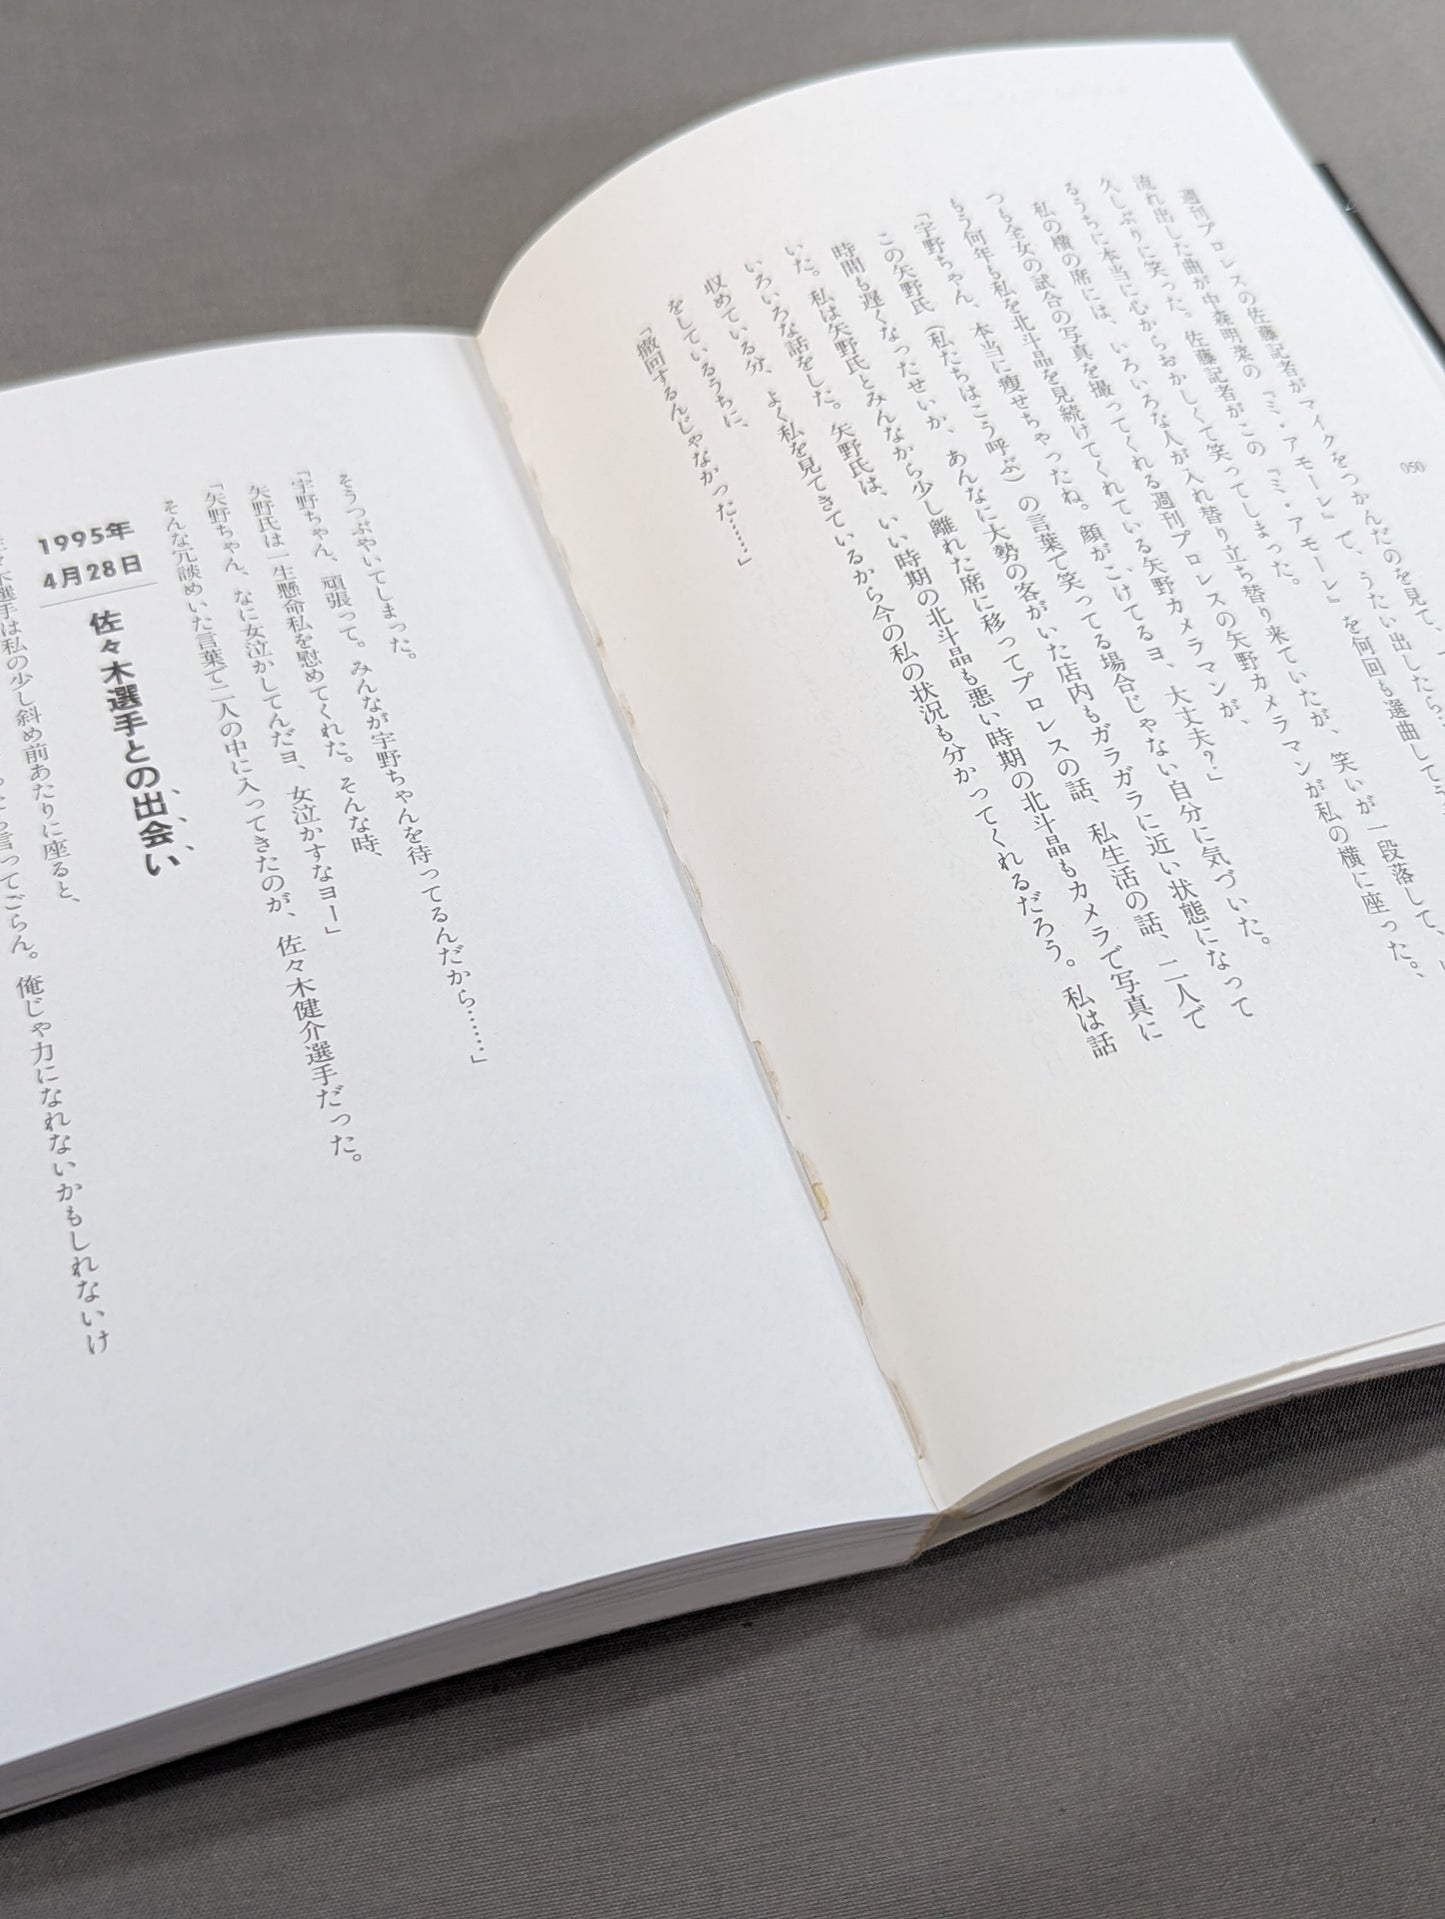 050
週刊プロレスの佐藤記者がマイクをつかんだのを見て、
流れ出した曲が中森明菜の『ミ・アモーレ』で、うたい出したら…
久しぶりに笑った。佐藤記者がこの『ミ・アモーレ』を何回も選曲してう
るうちに本当に心からおかしくて笑ってしまった。
私の横の席には、いろいろな人が入れ替り立ち替り来ていたが、笑いが一段落して、い
つも全女の試合の写真を撮ってくれる週刊プロレスの矢野カメラマンが私の横に座った。
もう何年も私を北斗晶を見続けてくれている矢野カメラマンが、
「宇野ちゃん、本当に痩せちゃったね。顔がこけてるヨ、大丈夫?」
この矢野氏(私たちはこう呼ぶ)の言葉で笑ってる場合じゃない自分に気づいた。
時間も遅くなったせいか、あんなに大勢の客がいた店内もガラガラに近い状態になって
いた。私は矢野氏とみんなから少し離れた席に移ってプロレスの話、私生活の話、二人で
いろいろな話をした。矢野氏は、いい時期の北斗晶も悪い時期の北斗晶もカメラで写真に
収めている分、よく私を見てきているから今の私の状況も分かってくれるだろう。私は話
をしているうちに、
「撤回するんじゃなかった……」
そうつぶやいてしまった。
「宇野ちゃん、頑張って。みんなが宇野ちゃんを待ってるんだから……」
矢野氏は一生懸命私を慰めてくれた。そんな時、
「矢野ちゃん、なに女泣かしてんだヨ、女泣かすなョー」
そんな冗談めいた言葉で二人の中に入ってきたのが、佐々木健介選手だった。
1995年
4月28日
佐々木選手との出会い
々木選手は私の少し斜め前あたりに座ると、
言ってごらん。俺じゃ力になれないかもしれないけ